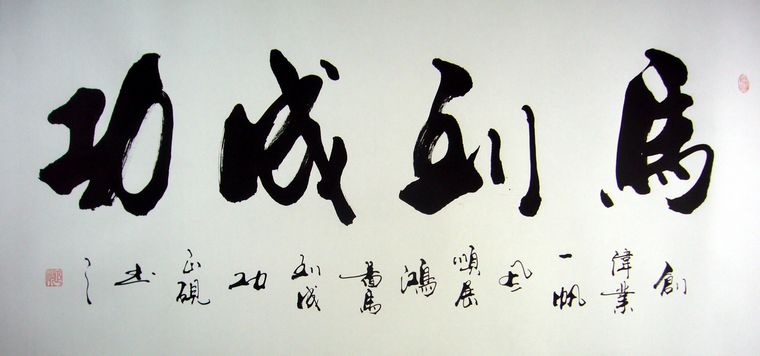 馬到成功
創偉業一帆風順展鴻圖馬到成功正硯書之